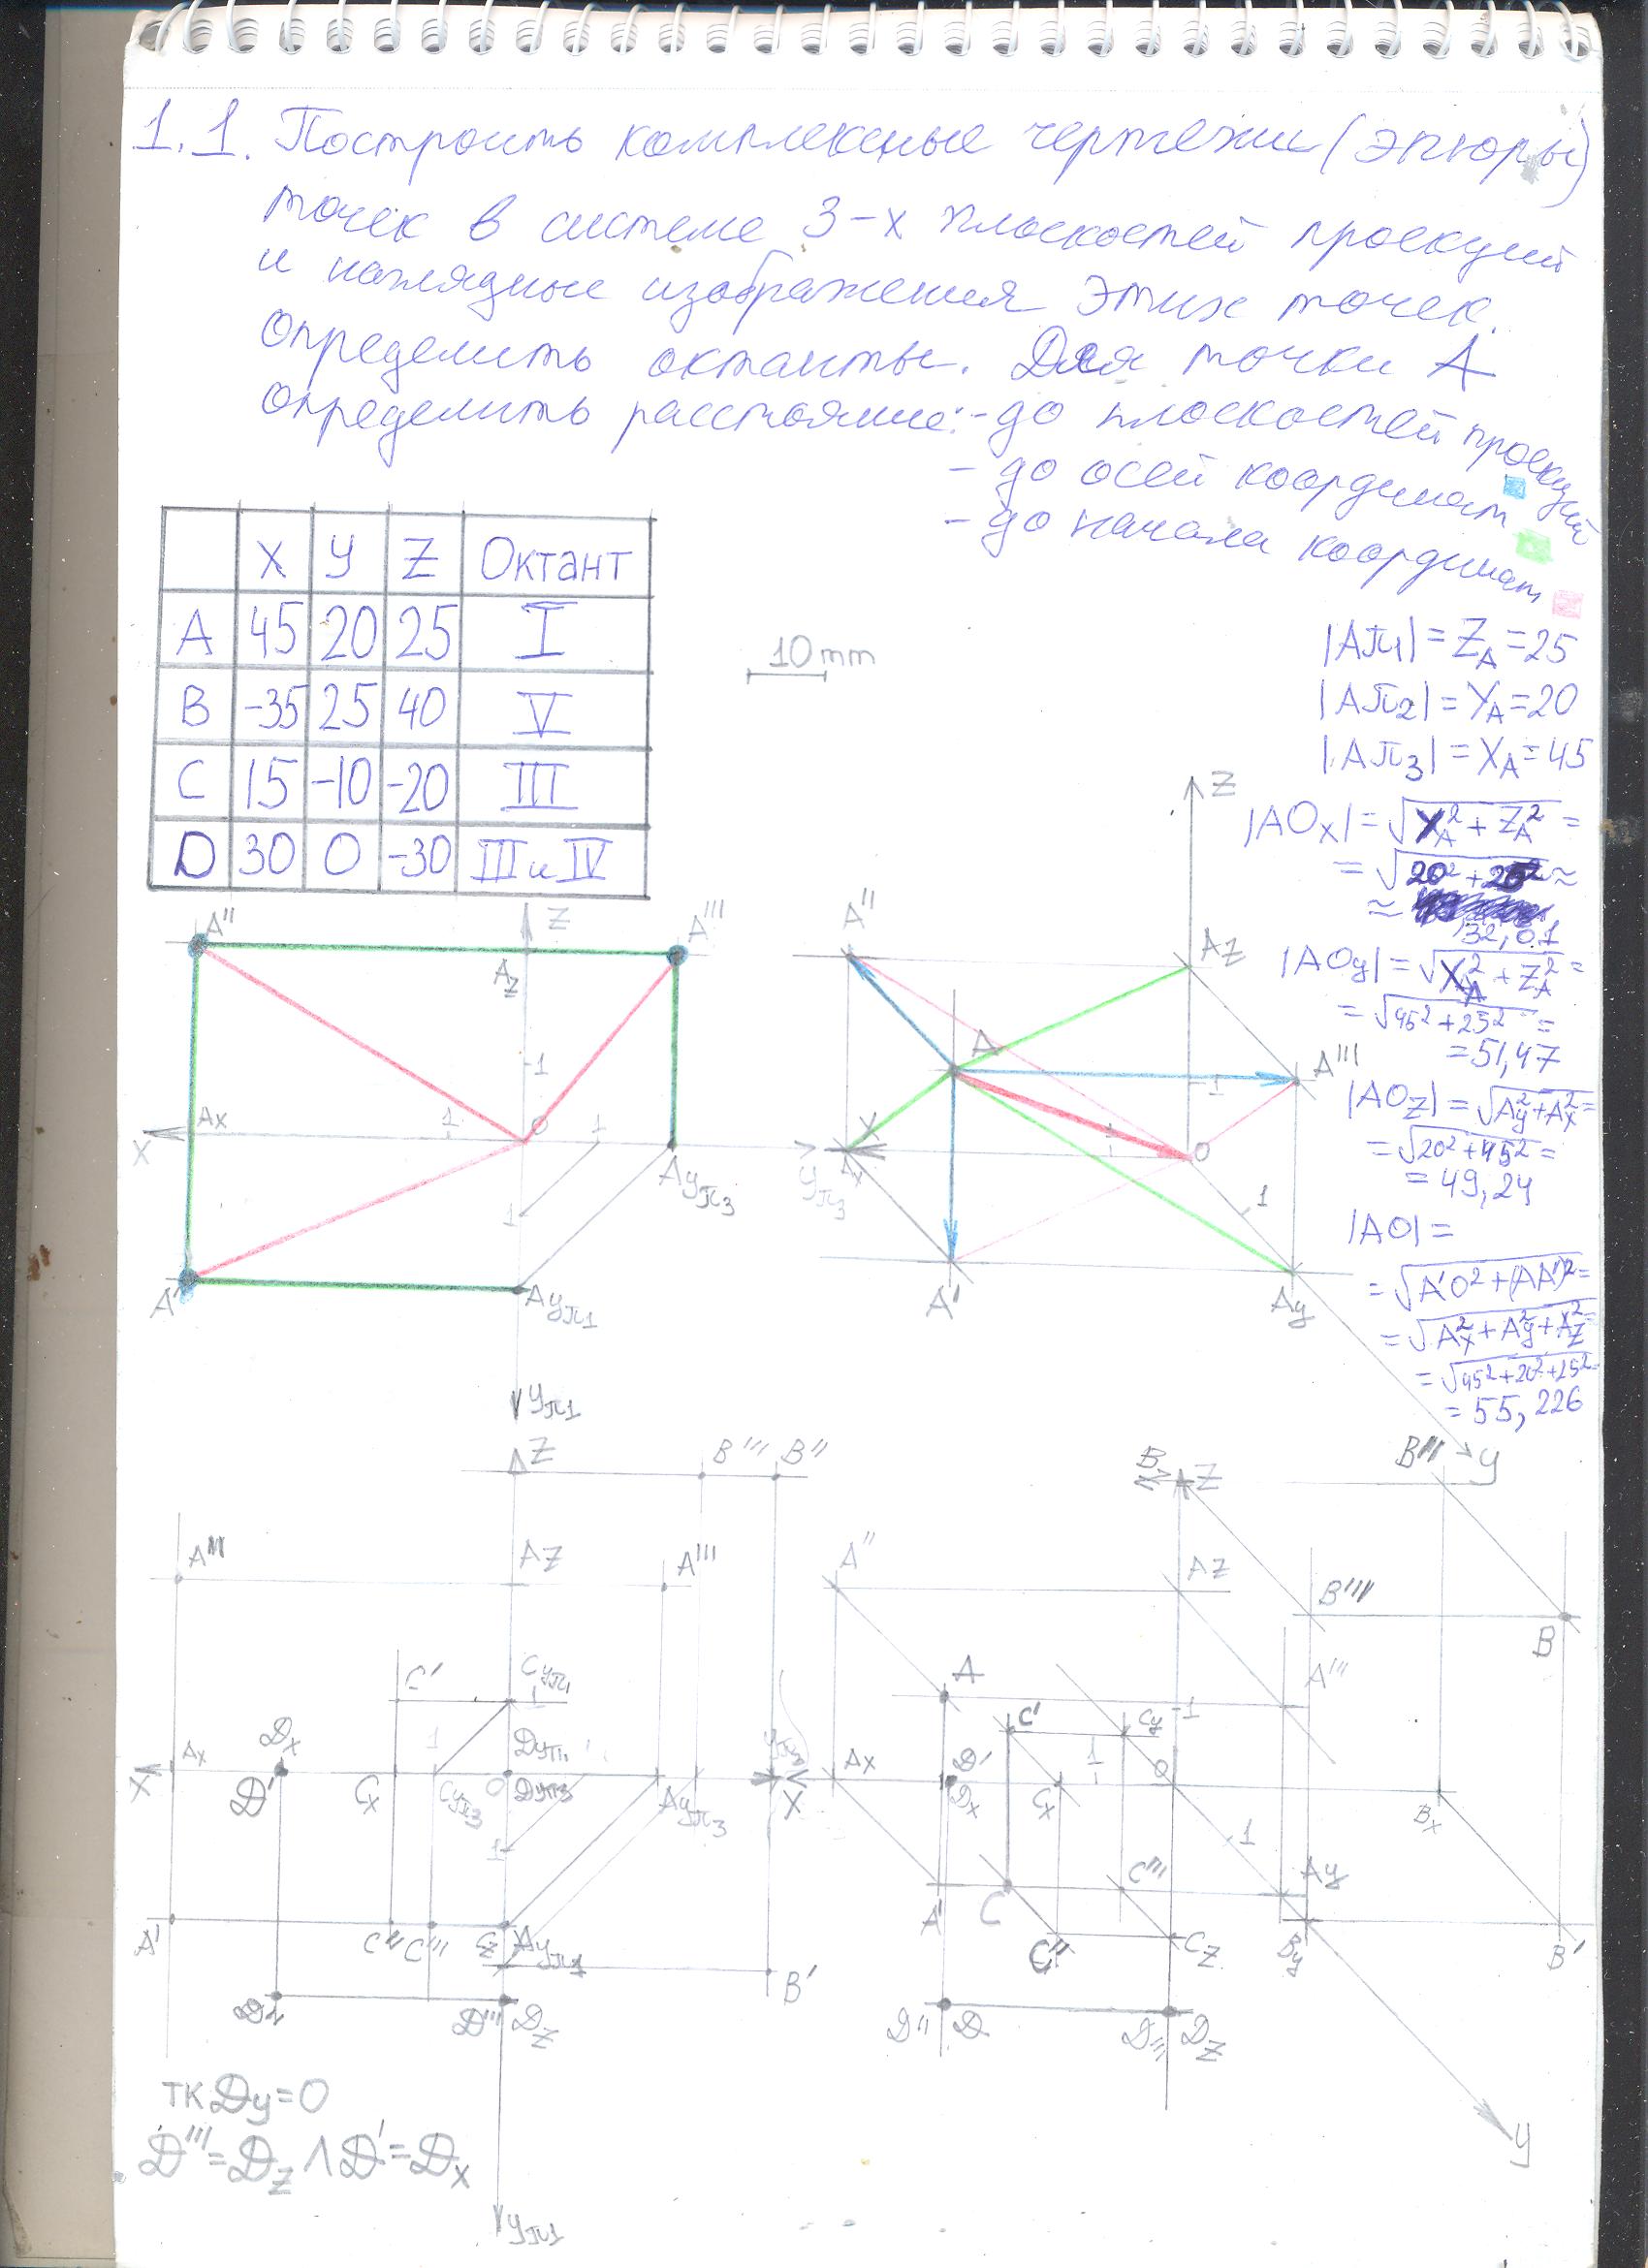 1.1. Построить комплексные чертежи (эпюры)
точек в системе 3-х плоскостей проекций
и наглядные изображения этих точек.
Определить октанты. Для точки А
определить расстояние: - до плоскостей проекций
- до осей координат
- до начала координат
X У Z Октант
A 45 20 25 I
B -35 25 40 V
C 15 -10 -20 III
D 30 0 -30 III и IV
10 mm
|Aπ1| = ZA = 25
|Aπ2| = YA = 20
|Aπ3| = XA = 45
|AOx| = √YA² + ZA² =
= √20² + 25² ≈
≈
32,01
|AOy| = √XA² + ZA² =
= √45² + 25² =
= 51,47
|AOz| = √Ay² + Ax² =
= √20² + 45² =
= 49,24
|AO| =
= √A'O² + (AA')² =
= √Ax² + Ay² + Az² =
= √45² + 20² + 25² =
= 55,226
A'' Z A'''
Az
1
X Ax 1 O 1 Ayπ3 yπ3
1
A' Ayπ1
yπ1
Z
A'' Az
A A'''
1
X Ax O
1
A' Ay
y
Z B''' B''
A''' Az A'''
C' Cyπ1
1
Dx Dyπ1
X Ax 1 O yπ3
D' Cx Cyπ3 Dyπ3 Ayπ3
1
A' C'' C''' Cz Ayπ1
B'
D''' Dz
yπ1
Bz Z B'''
A'' Az B'''
B
A A'''
C' Cy 1
X Ax D' 1 O
Dx Cx Bx
1
A' C C''' Ay
C'' Cz By B'
D'' D D''' Dz
y
тк Dy=0
D'''=Dz ∧ D'=Dx